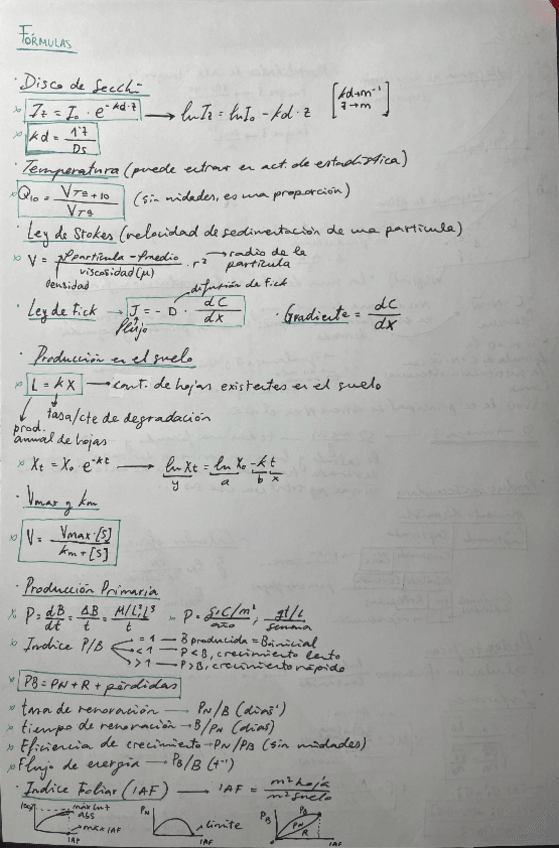 FÓRMULAS
· Disco de Secchi
» Iz = I₀ · e^(-kd·z) → ln Iz = ln I₀ - kd · z [kd→m⁻¹
z→m]
» kd = 1'7/Ds
· Temperatura (puede entrar en act. de estadística)
» Q₁₀ = V Tª+10 / V Tª (sin unidades, es una proporción)
· Ley de Stokes (velocidad de sedimentación de una partícula)
» V = ρpartícula - ρmedio / viscosidad (μ) · r² → radio de la partícula
densidad
difusión de Fick
· Ley de Fick → J = - D · dC/dx · Gradiente = dC/dx
flujo
· Producción en el suelo
» L = k X → cant. de hojas existentes en el suelo
tasa/cte de degradación
prod. anual de hojas
» Xt = X₀ · e^(-kt) → ln Xt = ln X₀ - k t
y a b x
· Vmax y km
» V = Vmax·[S] / km+[S]
· Producción Primaria
» P = dB/dt = ΔB/t = M/L² ó L³ / t → P = g C/m² / año ; gt/L / semana
» Indice P/B = 1 — B producida = B inicial
< 1 — P < B, crecimiento lento
> 1 — P > B, crecimiento rápido
» PB = PN + R + pérdidas
» tasa de renovación → PN/B (días⁻¹)
» tiempo de renovación → B/PN (días)
» Eficiencia de crecimiento → PN/PB (sin unidades)
» Flujo de energía → PB/B (t⁻¹)
· Indice Foliar (IAF) → IAF = m² hoja / m² suelo
100% máx luz abs máx IAF IAF
PN límite IAF
PB PB PN R IAF